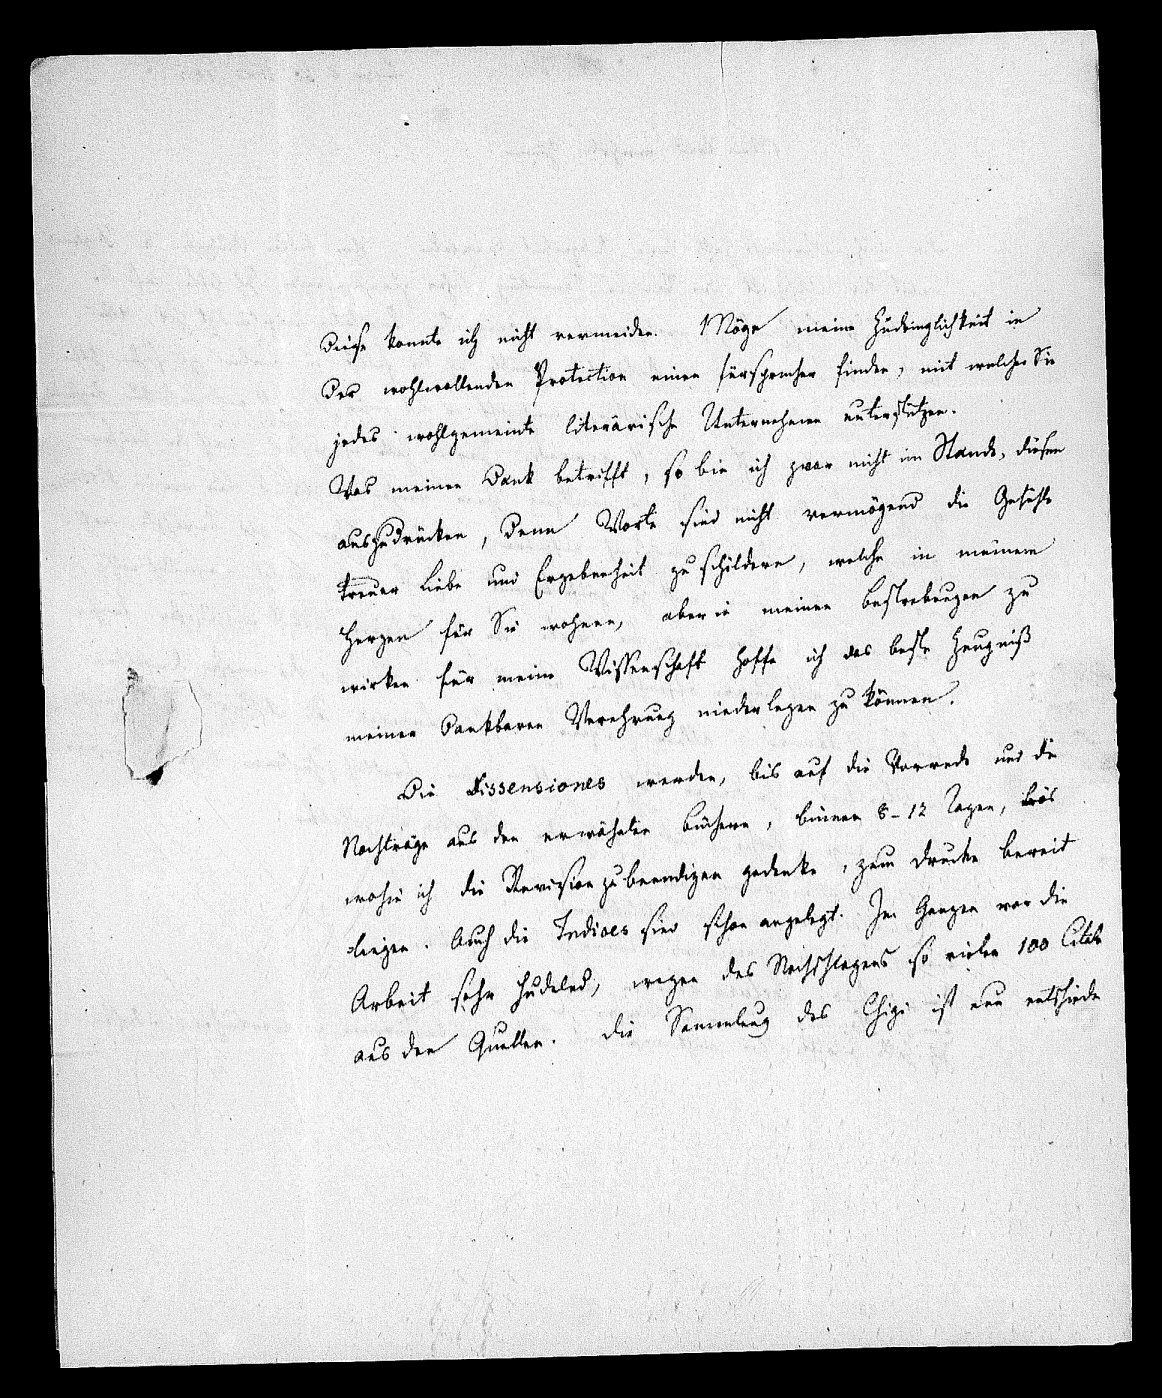 diese konnte ich nicht vermeiden. Möge meine Zudringlichkeit in
der wohlwollenden Protection einen Fürsprecher finden, mit welcher Sie
jedes wohlgemeinte literärische Unternehmen unterstützen.
Was meinen Dank betrifft, so bin ich zwar nicht im Stande, diesen
auszudrücken, denn Worte sind nicht vermögend die Gefühle
treuer Liebe und Ergebenheit zu schildern, welche in meinem
Herzen für Sie wohnen, aber in meinen Bestrebungen zu
wirken für meine Wissenschaft hoffe ich das beste Zeugniß
meiner dankbaren Verehrung niederlegen zu können.
Die Dissensiones werden, bis auf die Vorrede und die
Nachträge aus den erwähnten Büchern, binnen 8-12 Tagen, bis
wohin ich die Revision zu beendigen gedenke, zum Drucke bereit
liegen. Auch die Indices sind schon angelegt. Im Ganzen war die
Arbeit sehr hudelnd, wegen des Nachschlagens so vieler 100 Citate
aus den Quellen. Die Sammlung des Chigi ist nun entschieden